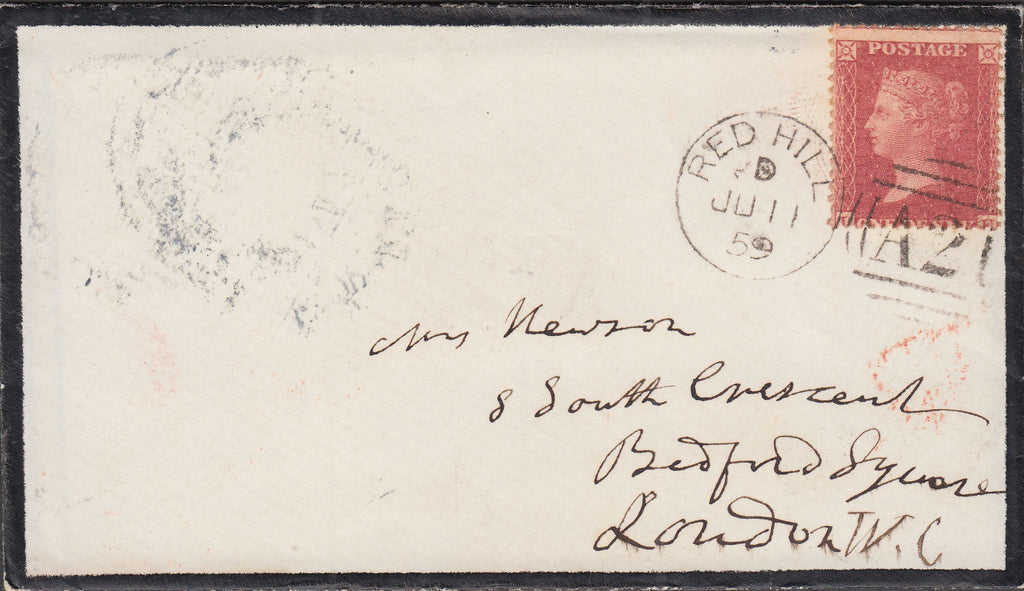 POSTAGE
RED HILL
D
JU 11
59
A 2
Mrs Newson
8 South Crescent
Bedford Square
London W.C